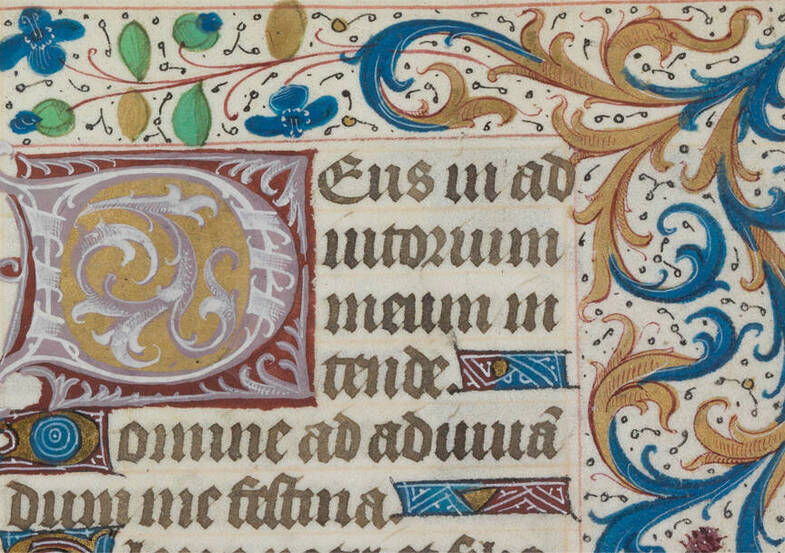 Deus in ad
iutorium
meum in
tende.
Domine ad adiuuā
dum me festina.